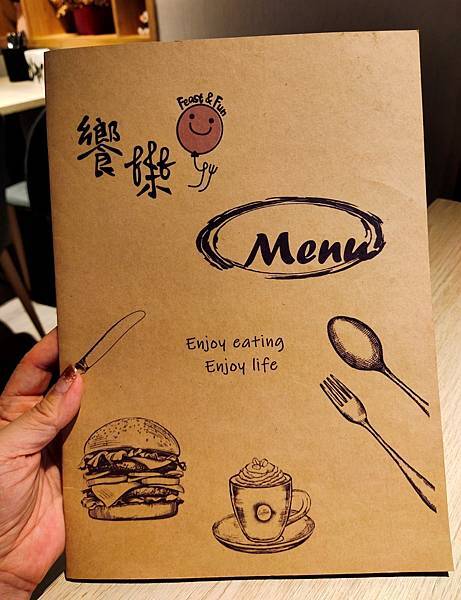 Feast & Fun
饗樂
Menu
Enjoy eating
Enjoy life